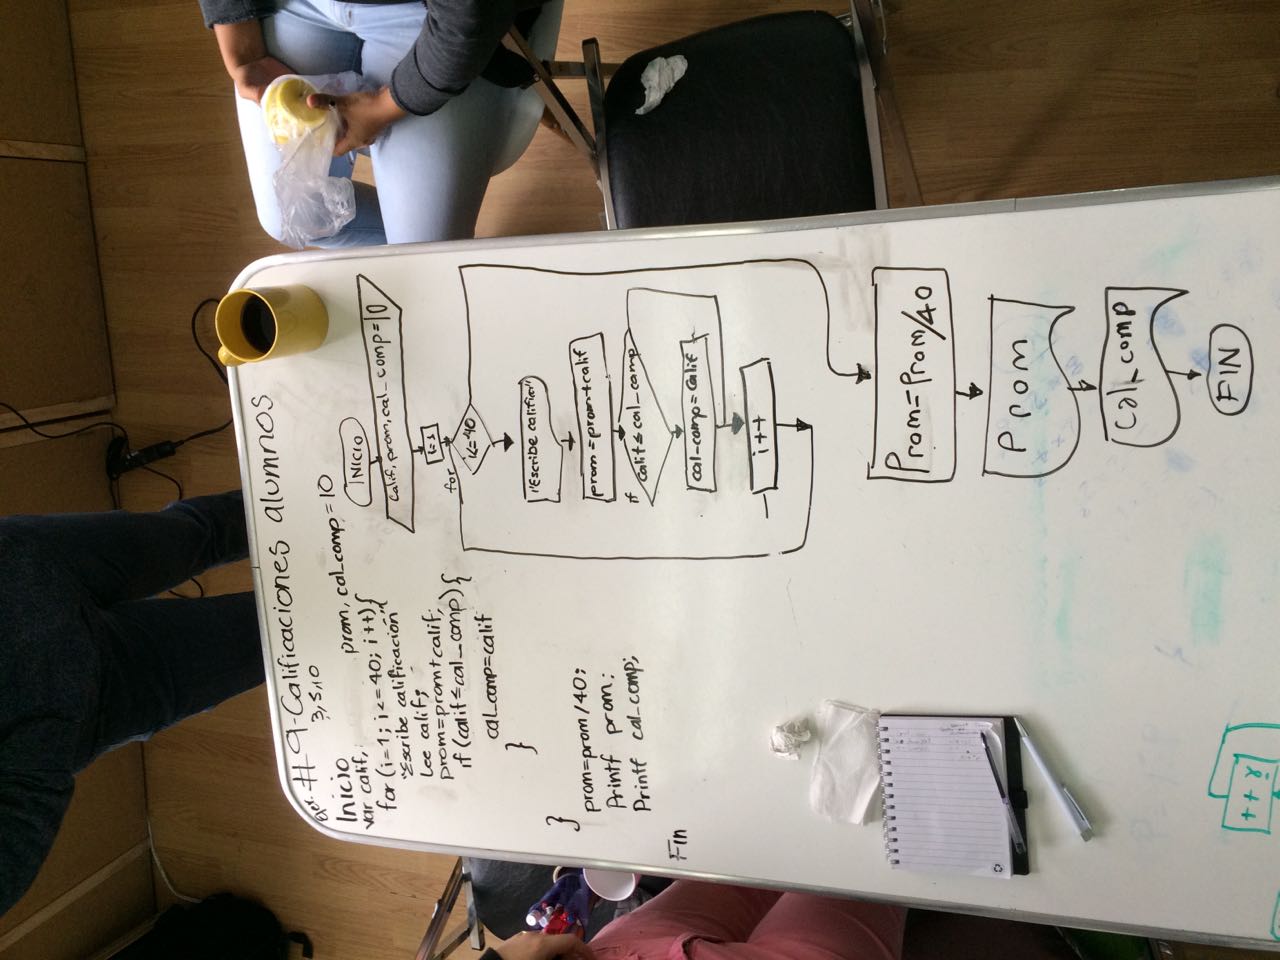 Ejer. #9-Calificaciones alumnos
3,5,10
Inicio
var calif, prom, cal_comp=10
for (i=1; i<=40; i++){
"Escribe calificación";
Lee calif;
prom=prom+calif;
if (calif≤cal_comp){
cal_comp=calif
}
}
prom=prom/40;
Printf prom;
Printf cal_comp;
Fin
INICIO
Calif, prom, cal_comp=10
i=1
for
i<=40
"Escribe califica"
prom=prom+calif
if calif≤cal_comp
cal-comp=calif
i++
Prom=Prom/40
Prom
Cal_comp
FIN
i++